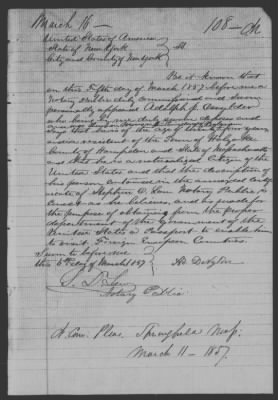 March 16 — 108 - M
United States of America
State of New York } ss.
City and County of New York
Be it known that
on this Fifth day of March 1857 before me a
Notary Public duly commissioned and sworn
personally appeared Adolph
who being by me duly sworn deposes and
says that he is of the age of thirty four years
and a resident of the Town of
County of Hampden State of Massachusetts
and that he is a naturalized Citizen of the
United States and that the description of
his person contained in the annexed
of Stephen D. Law Notary Public is
correct as he believes, and is made for
the purpose of obtaining from the proper
department of the Government of the
United States a Passport to enable him
to visit Foreign European Countries.
Sworn to before me
this 5th day of March 1857
S. D. Law
Notary Public
Ct. Com. Pleas, Springfield Mass;
March 11 - 1857.